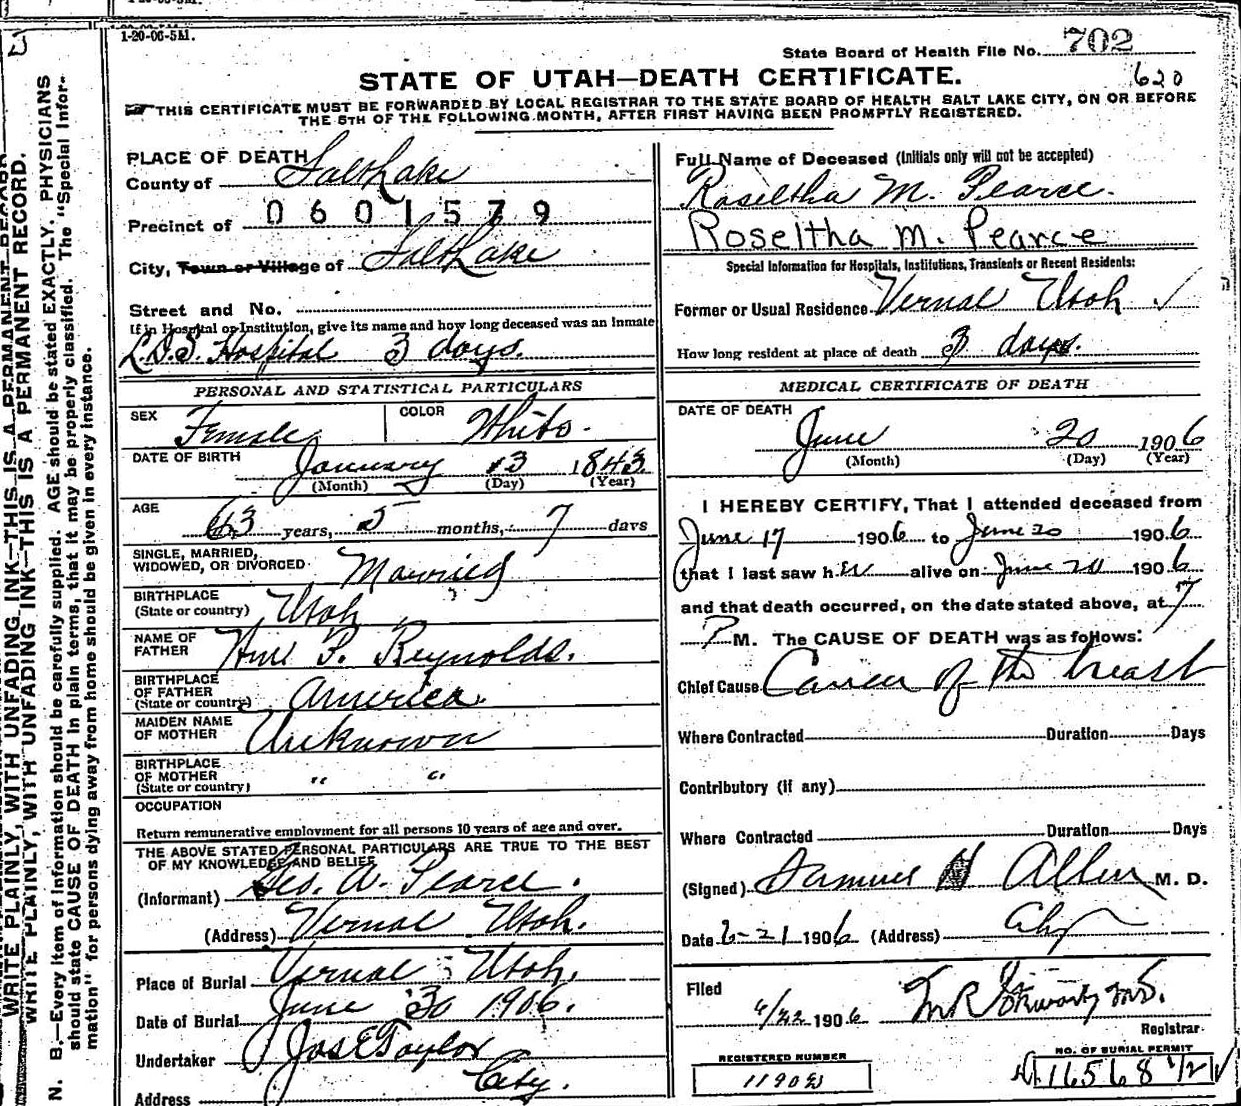 1-20-06-5M.
State Board of Health File No. 702
620
STATE OF UTAH—DEATH CERTIFICATE.
THIS CERTIFICATE MUST BE FORWARDED BY LOCAL REGISTRAR TO THE STATE BOARD OF HEALTH SALT LAKE CITY, ON OR BEFORE
THE 5TH OF THE FOLLOWING MONTH, AFTER FIRST HAVING BEEN PROMPTLY REGISTERED.
WRITE PLAINLY, WITH UNFADING INK—THIS IS A PERMANENT RECORD.
WRITE PLAINLY, WITH UNFADING INK—THIS IS A PERMANENT RECORD.
N. B.—Every item of information should be carefully supplied. AGE should be stated EXACTLY. PHYSICIANS
should state CAUSE OF DEATH in plain terms, that it may be properly classified. The "Special Infor-
mation" for persons dying away from home should be given in every instance.
PLACE OF DEATH
County of Salt Lake
0601579
Precinct of
City, Town or Village of Salt Lake
Street and No.
If in Hospital or Institution, give its name and how long deceased was an inmate
L.D.S. Hospital 3 days.
PERSONAL AND STATISTICAL PARTICULARS
SEX Female COLOR White.
DATE OF BIRTH January 13 1843
(Month) (Day) (Year)
AGE 63 years, 5 months, 7 days
SINGLE, MARRIED,
WIDOWED, OR DIVORCED Married
BIRTHPLACE
(State or country) Utah
NAME OF
FATHER Wm P. Reynolds.
BIRTHPLACE
OF FATHER
(State or country) America.
MAIDEN NAME
OF MOTHER Unknown
BIRTHPLACE
OF MOTHER
(State or country) " "
OCCUPATION
Return remunerative employment for all persons 10 years of age and over.
THE ABOVE STATED PERSONAL PARTICULARS ARE TRUE TO THE BEST
OF MY KNOWLEDGE AND BELIEF
(Informant) Geo. A. Pearce.
(Address) Vernal Utah.
Place of Burial Vernal Utah.
Date of Burial June 30 1906.
Undertaker Jos E Taylor
Address City.
Full Name of Deceased (Initials only will not be accepted)
Roseltha M. Pearce.
Roseltha M. Pearce
Special Information for Hospitals, Institutions, Transients or Recent Residents:
Former or Usual Residence Vernal Utah ✓
How long resident at place of death 3 days.
MEDICAL CERTIFICATE OF DEATH
DATE OF DEATH
June 20 1906
(Month) (Day) (Year)
I HEREBY CERTIFY, That I attended deceased from
June 17 1906 to June 20 1906
that I last saw her alive on June 20 1906
and that death occurred, on the date stated above, at 7
P M. The CAUSE OF DEATH was as follows:
Chief Cause Cancer of the breast
Where Contracted Duration Days
Contributory (if any)
Where Contracted Duration Days
(Signed) Samuel H Allen M. D.
Date 6-21 1906 (Address) City
Filed
6/22 1906
Registrar
REGISTERED NUMBER
NO. OF BURIAL PERMIT
16568 1/2